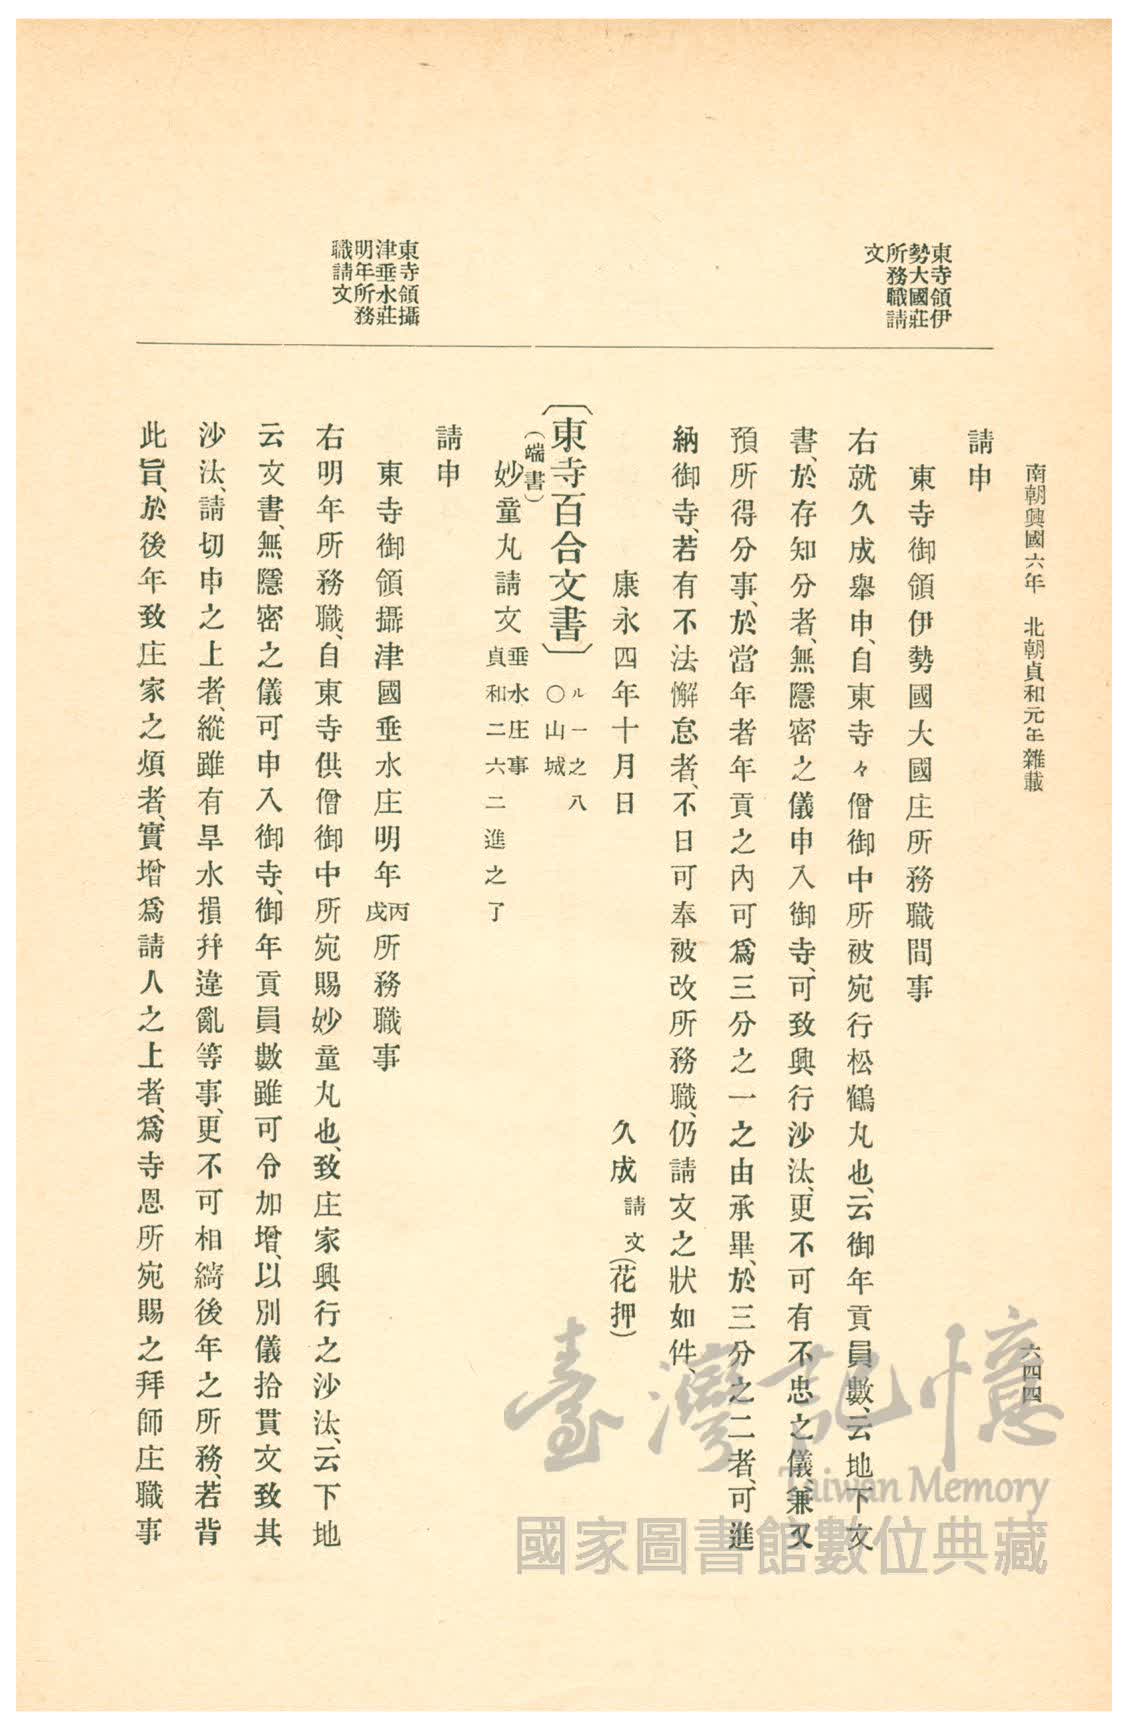 南朝興國六年　北朝貞和元年雜載
六四四
東寺領伊
勢大國莊
所務職請
文
請申
東寺御領伊勢國大國庄所務職間事
右就久成擧申、自東寺々僧御中所被宛行松鶴丸也、云御年貢員數、云地下文
書、於存知分者、無隱密之儀申入御寺、可致興行沙汰、更不可有不忠之儀、兼又
預所得分事、於當年者年貢之內可爲三分之一之由承畢、於三分之二者、可進
納御寺、若有不法懈怠者、不日可奉被改所務職、仍請文之狀如件、
康永四年十月日
久成請文(花押)
〔東寺百合文書〕
ル一之八
○山城
(端書)
妙童丸請文
垂水庄事
貞和二六二進之了
東寺領攝
津垂水莊
明年所務
職請文
請申
東寺御領攝津國垂水庄明年丙戌所務職事
右明年所務職、自東寺供僧御中所宛賜妙童丸也、致庄家興行之沙汰、云下地
云文書、無隱密之儀可申入御寺、御年貢員數雖可令加增、以別儀拾貫文致其
沙汰、請切申之上者、縱雖有旱水損幷違亂等事、更不可相綺後年之所務、若背
此旨、於後年致庄家之煩者、實增爲請人之上者、爲寺恩所宛賜之拜師庄職事
臺灣記憶
Taiwan Memory
國家圖書館數位典藏